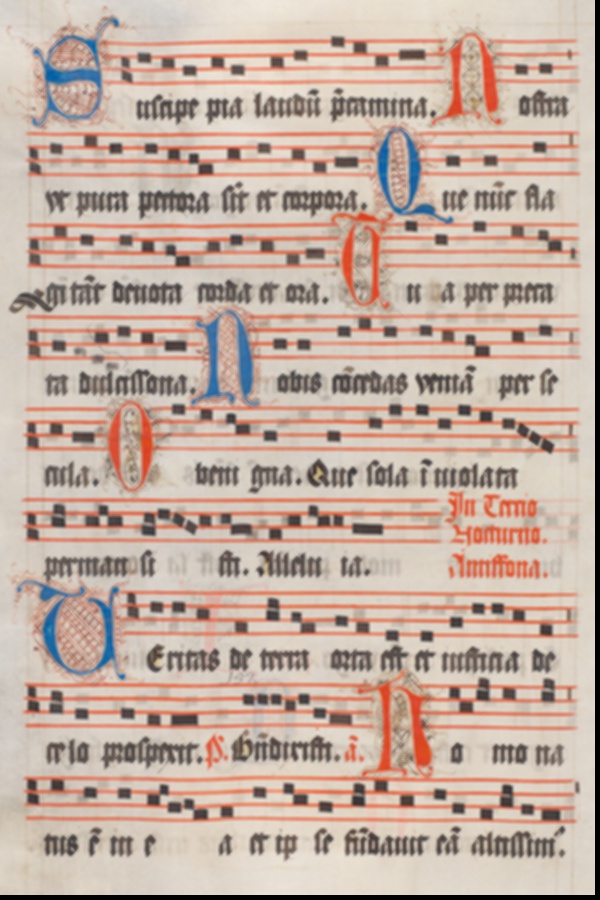 Suscipe pia laudū p̄camina. Nostra
vt pura pectora sīt et corpora. Que nūc fla
gitāt deuota corda et ora. Tu a per preca
ta dulcissona. Nobis cōcedas veniā per se
cula. O beni gna. Que sola īuiolata
perman si sti. Alleluia.
In Terno
Nocturno.
Antiffona.
Veritas de terra orta est et iusticia de
celo prosperit. p̄. Bn̄dixisti. ā. Ho mo na
tus ē in e a et ip se fūdauit eā altissim9.